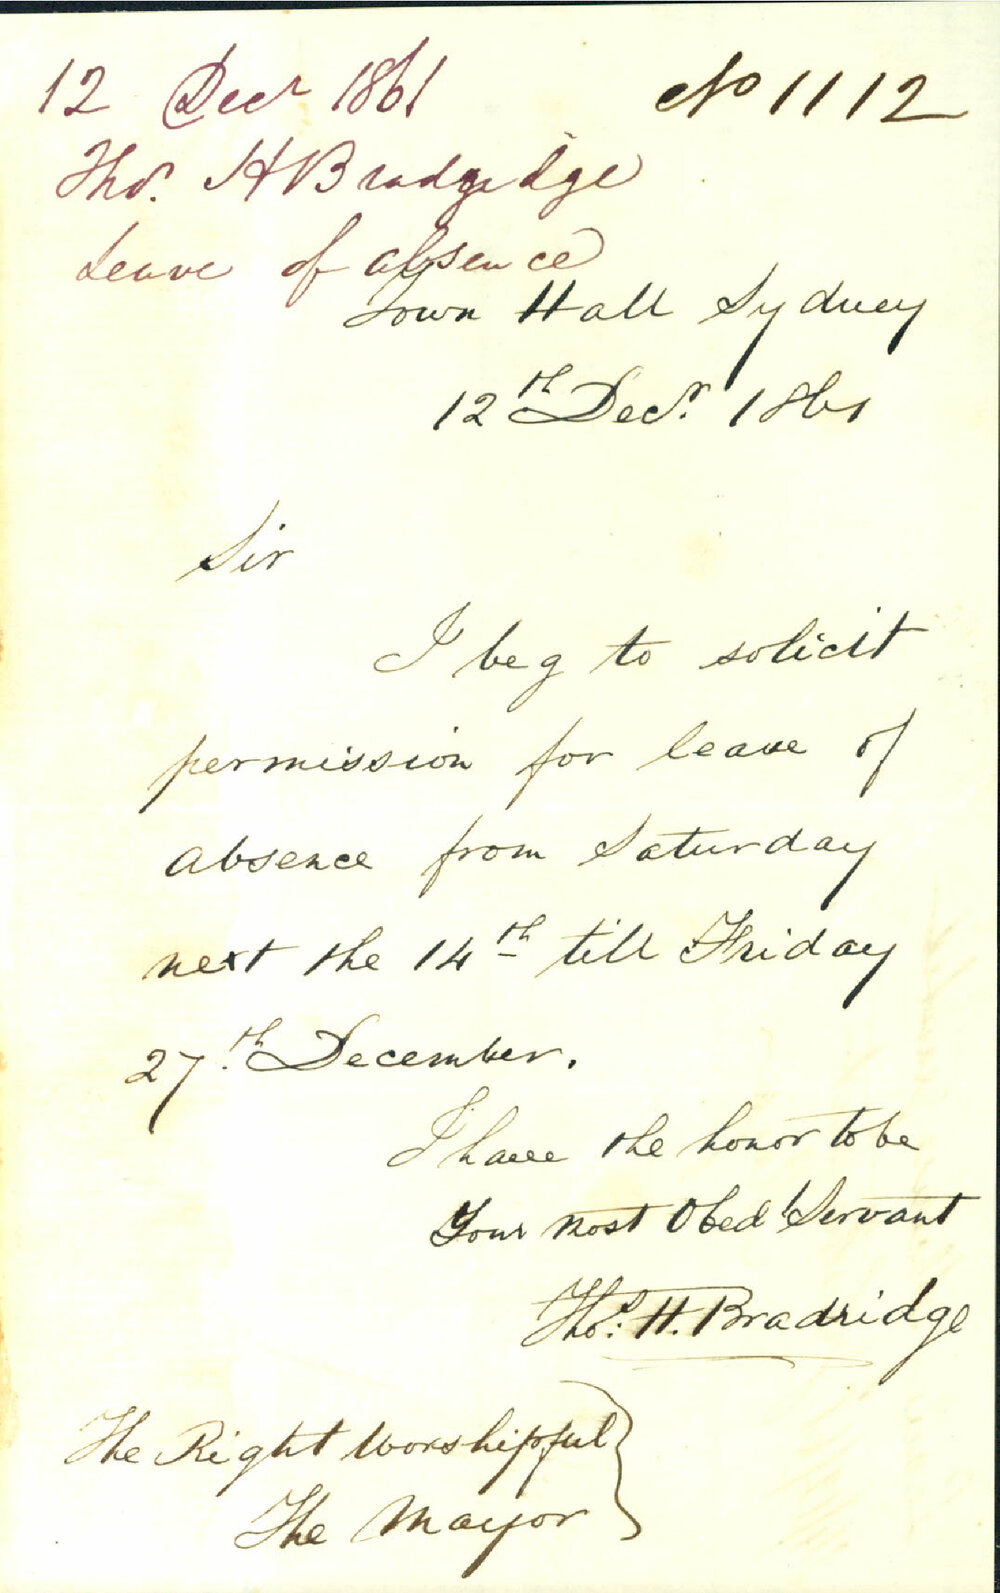 12 Decr 1861 No 1112
Thos. H Bradridge
Leave of absence
Town Hall Sydney
12th Decr. 1861
Sir
I beg to solicit
permission for leave of
absence from Saturday
next the 14th till Friday
27th December.
I have the honor to be
Your most Obedt Servant
Thos. H. Bradridge
The Right Worshipful
The Mayor